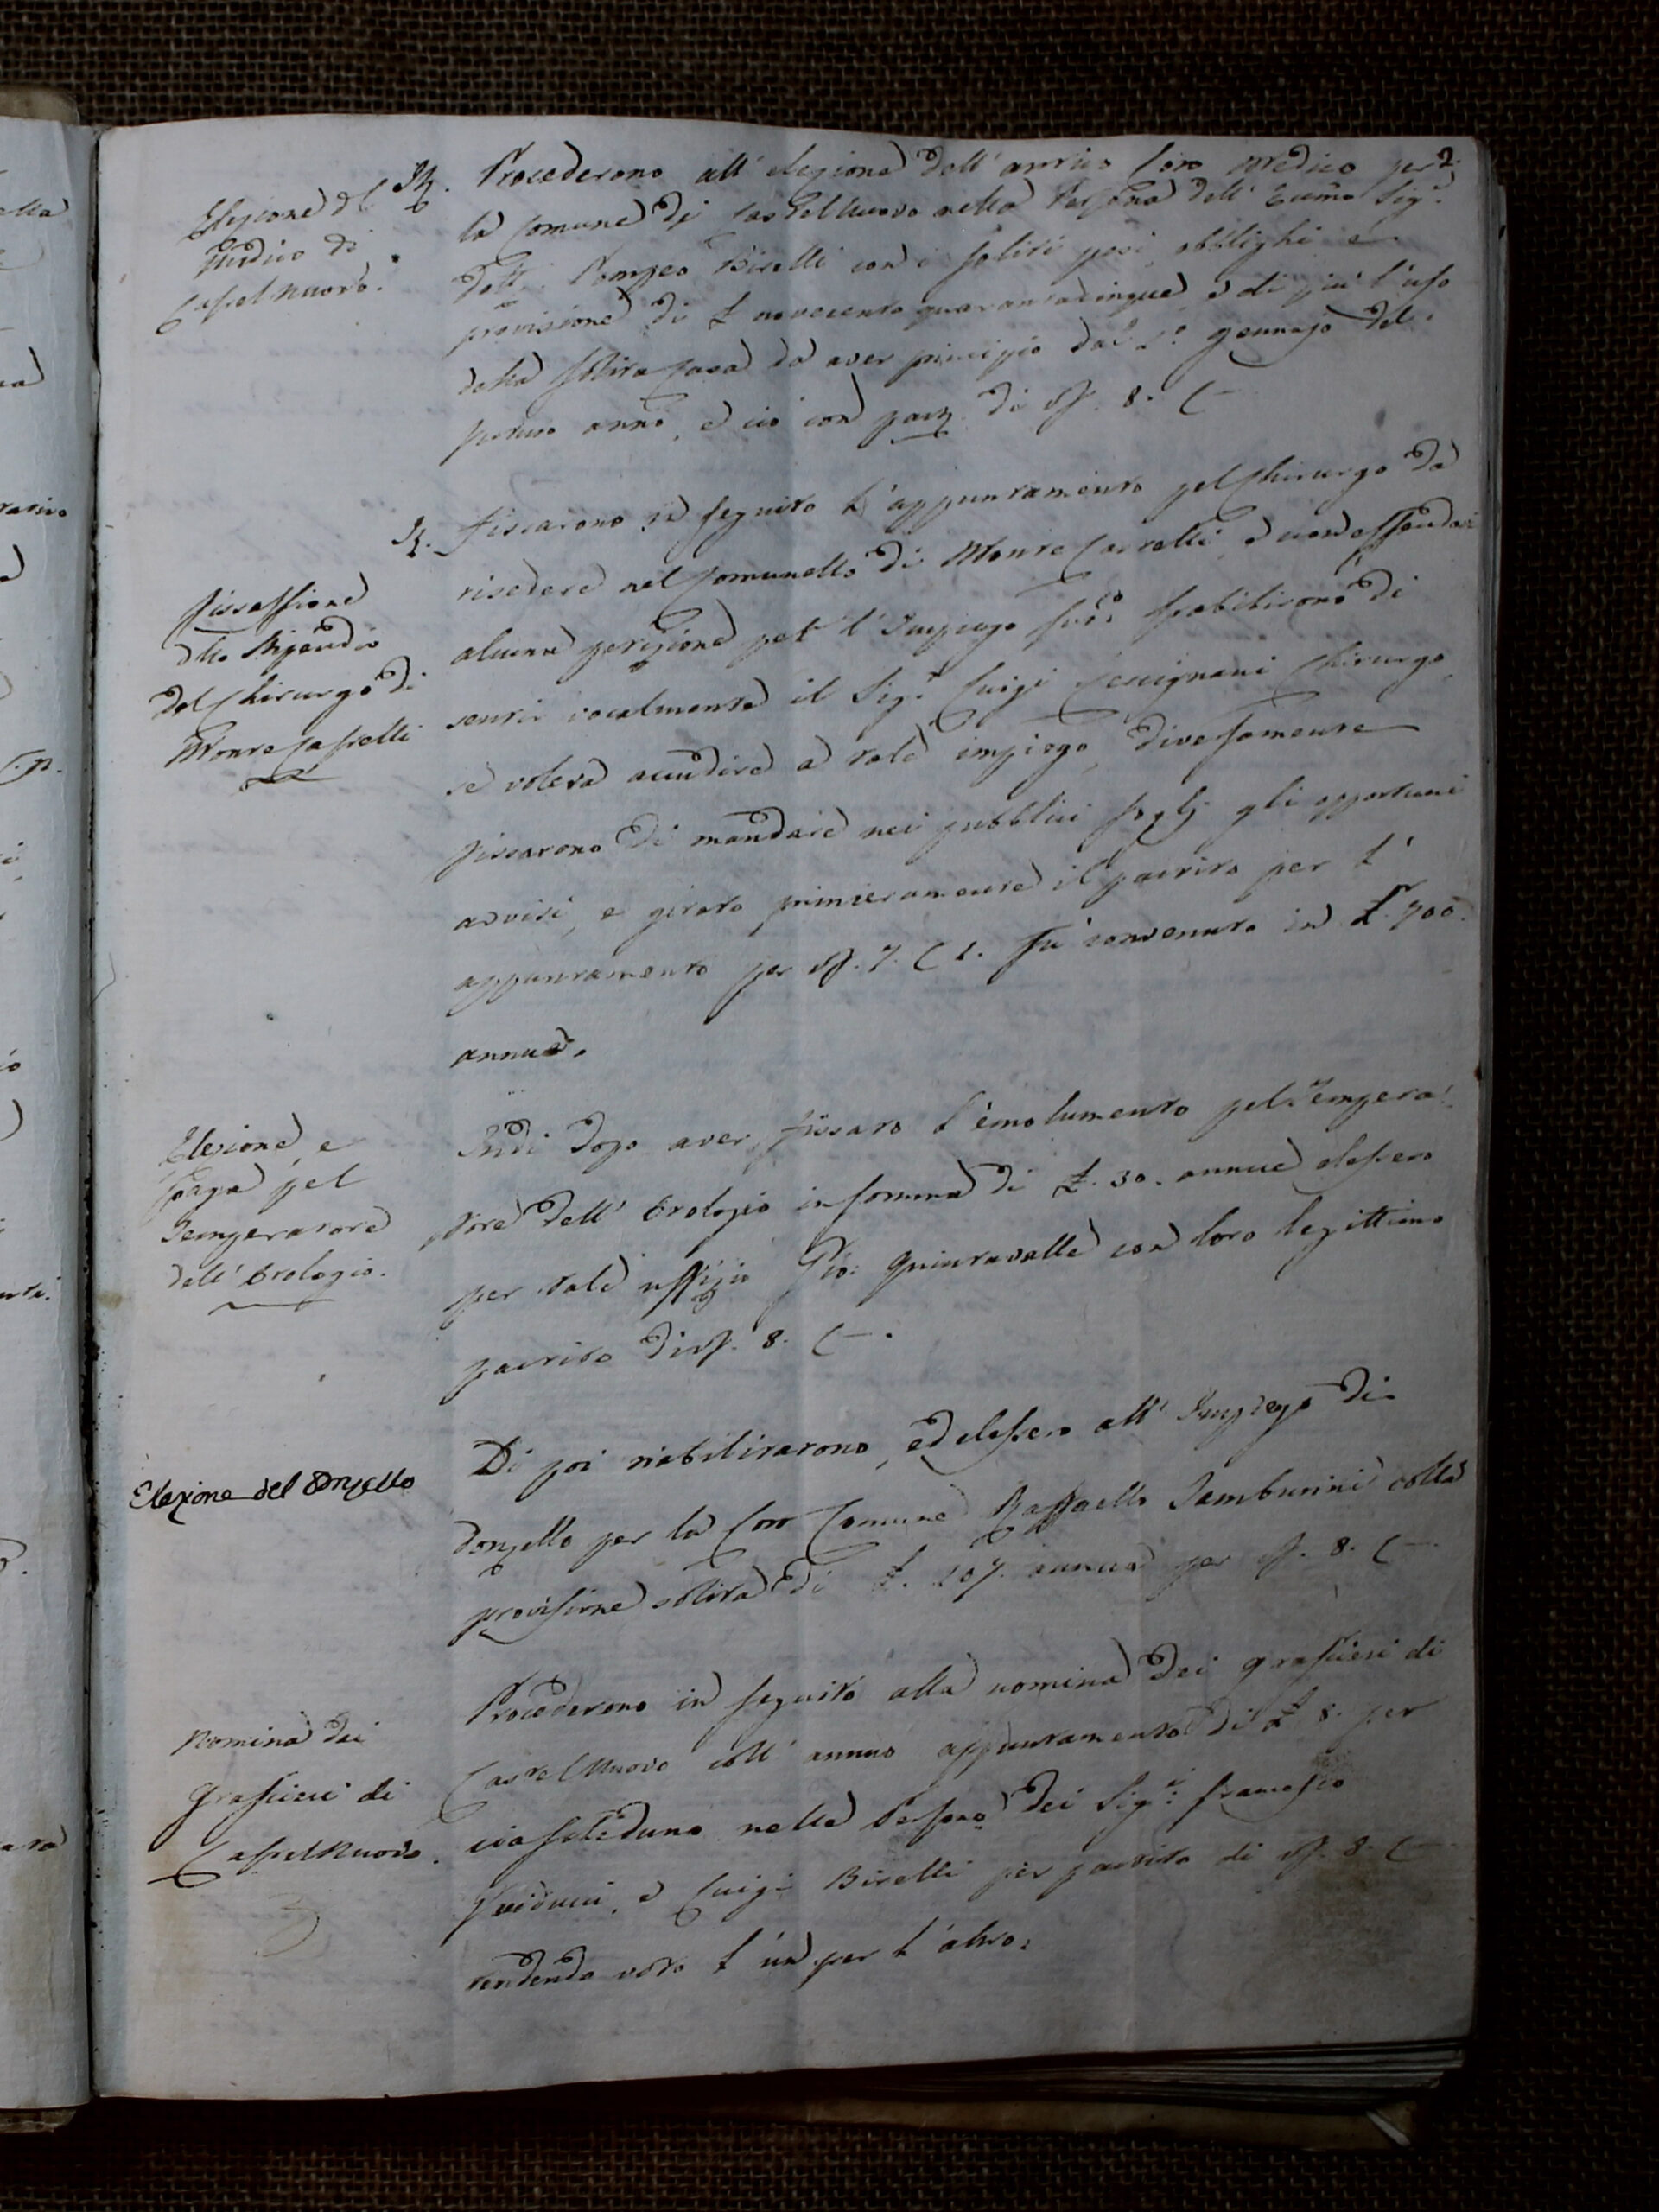 2.
Elezione del
Medico di
Castel nuovo.
Procederono all' elezione dell' antico loro Medico per
la Comune di Castelnuovo nella Persona dell' Eccmo Sigr.
Dott. Pompeo Birelli con i soliti pesi, obblighi e
provisione di £ novecento quarantacinque, e di più l'uso
della solita Casa da aver principio dal 1º. gennajo del
pmo anno, e ciò con
Fissazione
dello Stipendio
del Chirurgo di
Monte Castelli
Fissarono in seguito l'appuntamento pel Chirurgo da
risedere nel Comunello di Monte Castelli, e non essendovi
alcuna petizione per l'Impiego stabilirono di
sentir vocalmente il Sigr. Luigi Cercignani Chirurgo,
se voleva accudire a tale impiego, diversamente
fissarono di mandare nei pubblici foglj gli opportuni
avvisi, e girato primieramente il partito per l'
appuntamento per 7. 1. fu convenuto in £. 700.
annue.
Elezione, e
paga pel
Temperatore
dell' Orologio.
Indi dopo aver fissato l'emolumento pel Tempera-
tore dell' Orologio in somma di £. 30. annue elessero
per tale uffizio Gio: Quintavalle con loro legittimo
partito di 8.
Elezione del Donzello
Di poi riabilitarono, ed elessero all' Impiego di
donzello per la loro Comune Raffaello Tamburini colla
provisione solita di £. 107. annue per 8.
Nomina dei
Grascieri di
Castelnuovo.
Procederono in seguito alla nomina dei grascieri di
Castelnuovo coll' annuo appuntamento di £ 8. per
ciascheduno nelle Persone dei Sigri. Francesco
e Luigi Birelli per partito di 8.
rendendo voto l'un per l'altro.